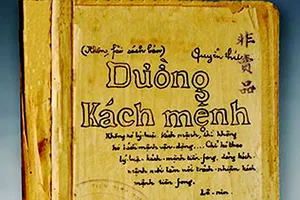 (Không fải sách bán)
Quyển
非賣品
Duồng
Kách mệnh
Không có lý luận kách mệnh, thì không
có kách mệnh vận động.... Chỉ có theo
lý luận kách mệnh tiền fong, đảng kách
mệnh mới làm nổi trách nhiệm kách
mệnh tiền fong.
Lê-nin.